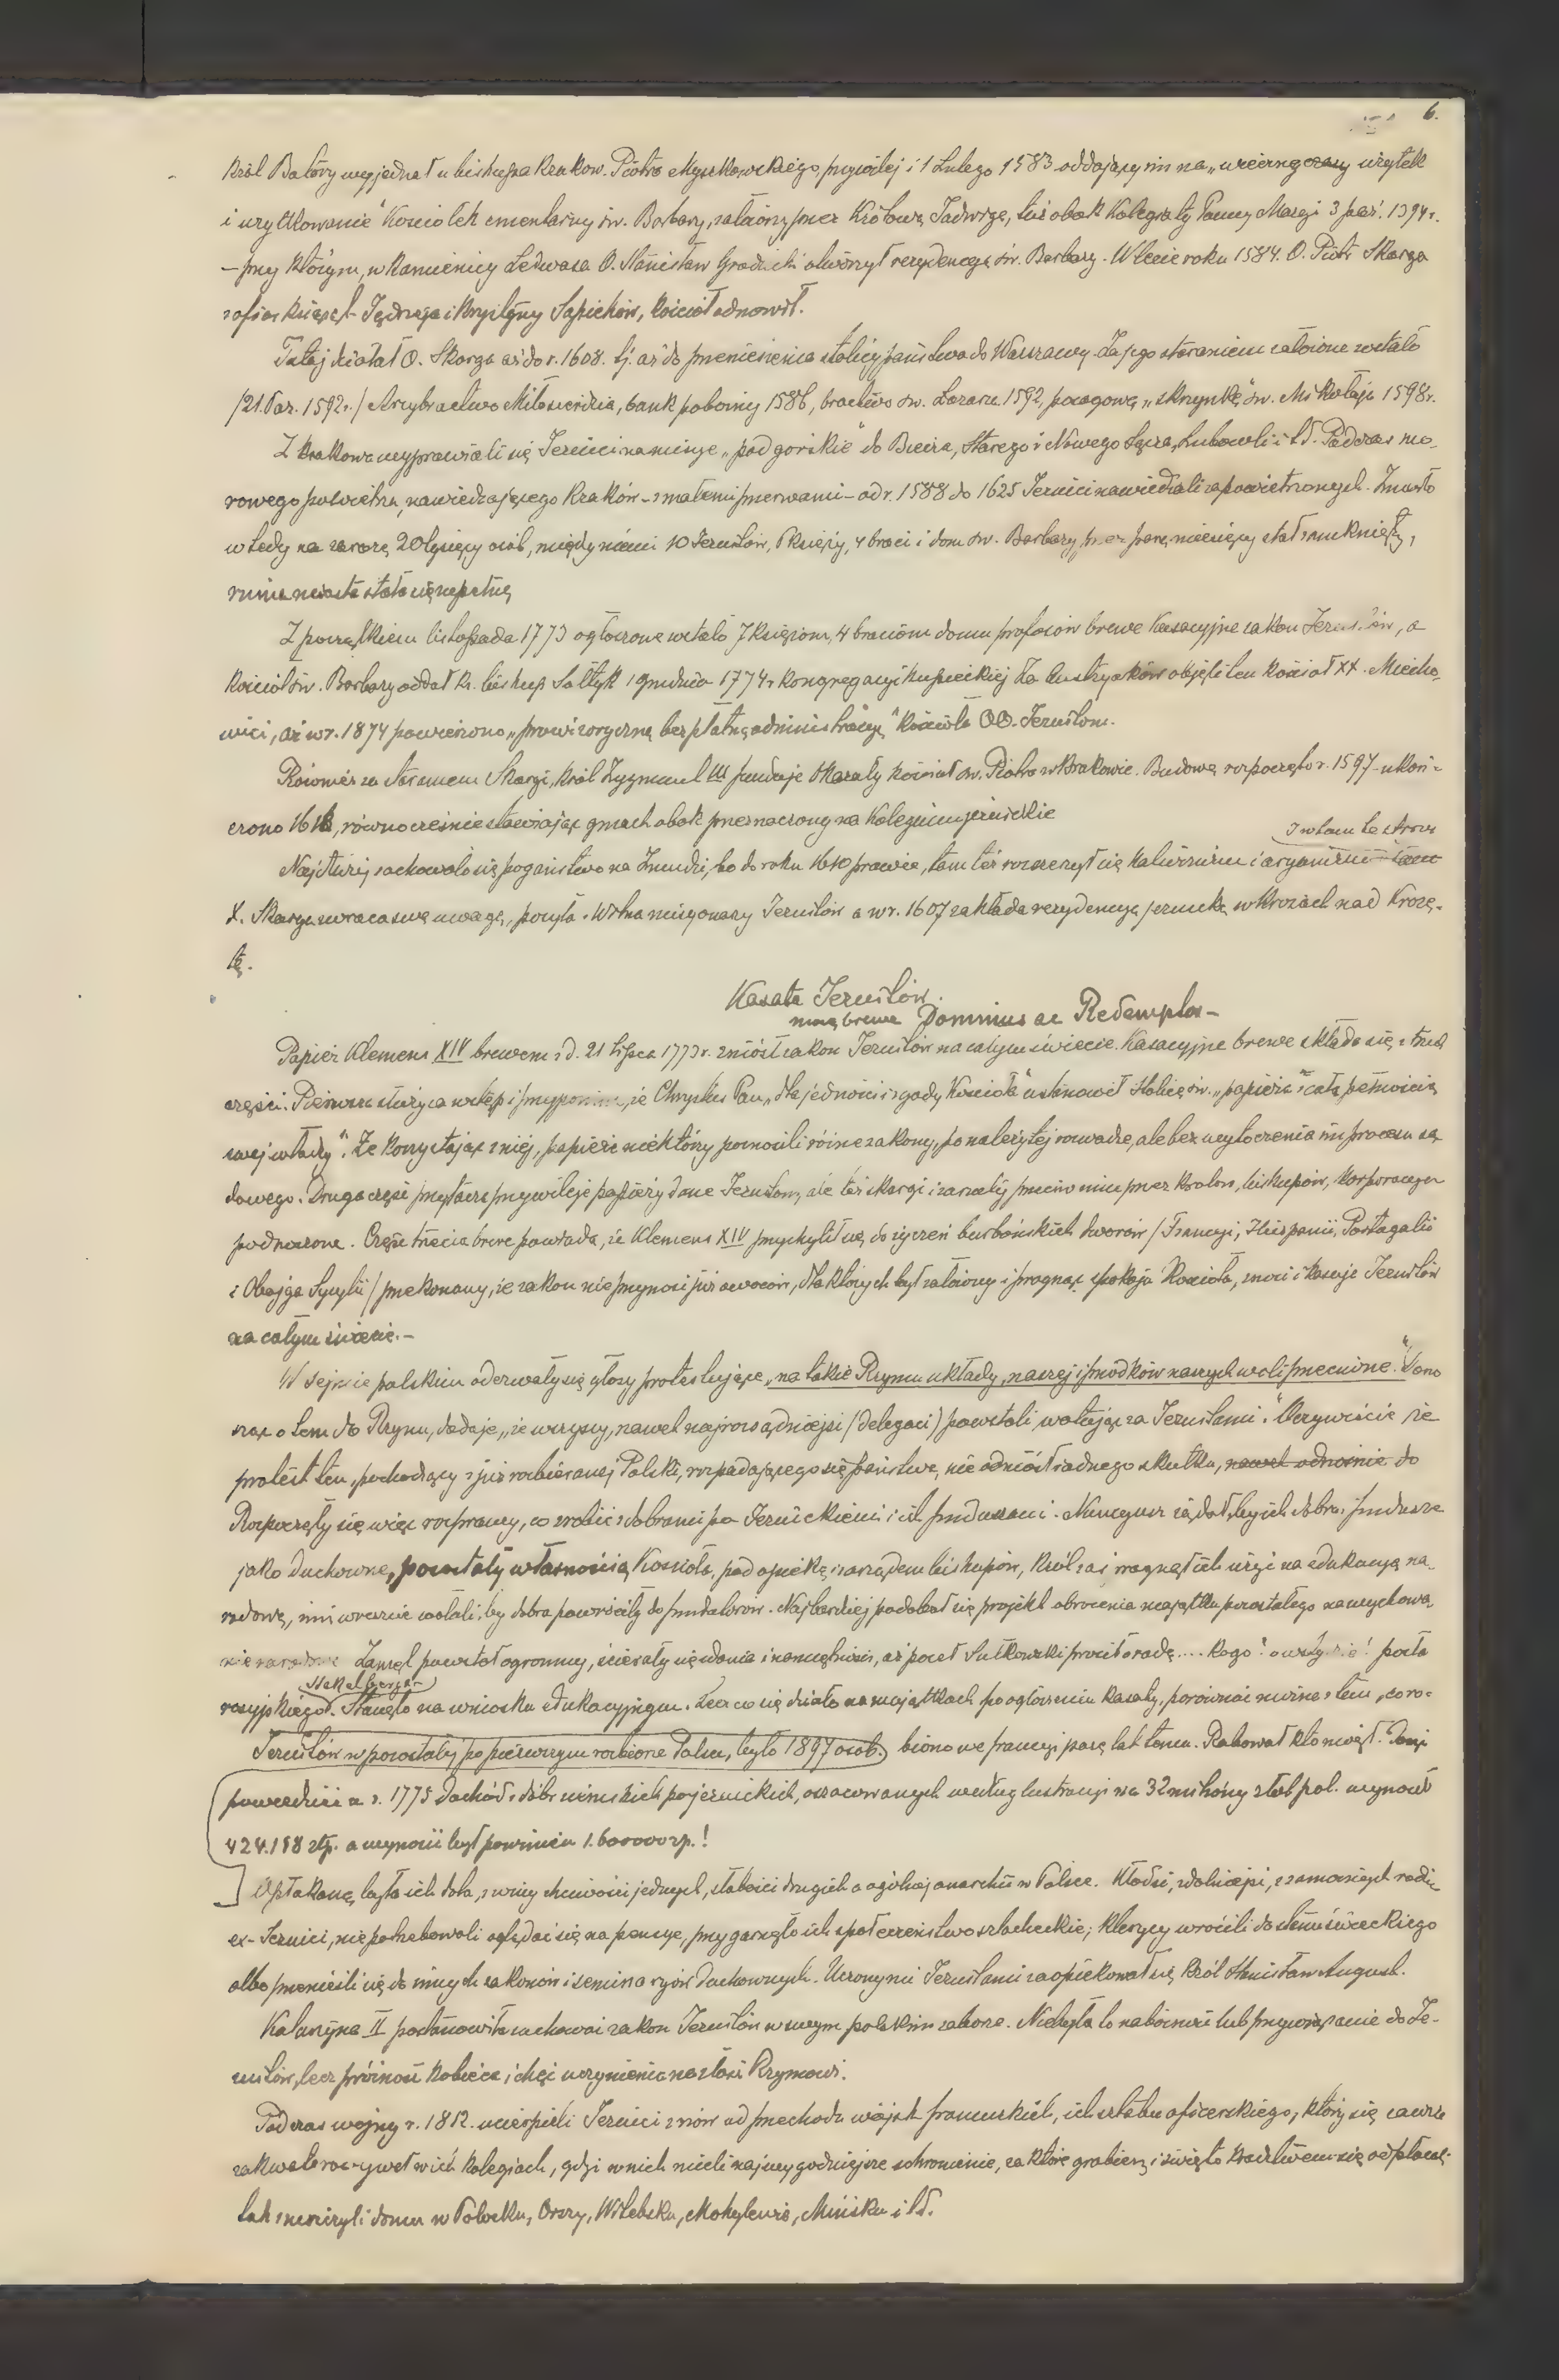 6.
Król Batory wyjednał u biskupa krakow. Piotra Myszkowskiego, przywilej i 1 Lutego 1583 oddający im na „wieczne czasy użytek
i użytkowanie" Kościołek cmentarny św. Barbary, założony przez Królowę Jadwigę, tuż obok Kolegiaty Panny Maryi 3 paź. 1394 r.
– przy którym, w kamienicy Ledwasa O. Stanisław Grodzicki otworzył rezydencyę św. Barbary. W lecie roku 1584. O. Piotr Skarga
z ofiar książąt Jędrzeja i Krystyny Sapiehów, kościół odnowił.
Tutaj działał O. Skarga aż do r. 1608. tj. aż do przeniesienia stolicy państwa do Warszawy. Za jego staraniem założone zostało
/21. Paz. 1592 r./ Arcybractwo Miłosierdzia, bank pobożny 1586, bractwo św. Łazarza 1592, posagową „skrzynkę" św. Mikołaja 1598 r.
Z Krakowa wyprawiali się Jezuici na misye „podgorskie" do Biecza, Starego i Nowego Sącza, Lubowli i td. Podczas mo-
rowego powietrza, nawiedzającego Kraków – z małemi przerwami – od r. 1588 do 1625 Jezuici nawiedzali zapowietrzonych. Zmarło
wtedy na zarazę 20 tysięcy osób, między niemi 10 Jezuitów, 6 księży, 4 braci i dom św. Barbary przez parę miesięcy stał zamknięty,
ruina miasta stała się zupełną
Z początkiem listopada 1773 ogłoszone zostało 7 księżom, 4 braciom domu profesów brewe kasacyjne zakon Jezuitów, a
kościół św. Barbary oddał ks. biskup Sołtyk 1 grudnia 1774 r kongregacyi kupieckiej Za Austryaków objęli ten kościół XX. Miecho-
wici, aż w r. 1874 powierzono „prowizoryczną bezpłatną administracyę" kościoła OO. Jezuitom.
Również za staraniem Skargi, król Zygmunt III funduje okazały kościół św. Piotra w Krakowie. Budowę rozpoczęto r. 1597 – ukoń-
czono 1618, równocześnie stawiając gmach obok przeznaczony na Kolegium jezuickie
I w tam te strony
Najdłużej zachowało się pogaństwo na Żmudzi, bo do roku 1610 prawie, tam też rozszerzył się kalwinizm i aryanizm – tam
X. Skarga zwraca swą uwagę, posyła z Wilna misyonarzy Jezuitów a w r. 1607 zakłada rezydencyę jezuicką w Krożach nad Krożę-
tą.
Kasata Jezuitów.
mocą brewe Dominus ac Redemptor –
Papież Klemens XIV brewem z d. 21 lipca 1773 r. zniósł zakon Jezuitów na całym świecie. Kasacyjne brewe składa się z trzech
części. Pierwsza służy za wstęp i przypomina, że Chrystus Pan „dla jedności i zgody Kościoła" ustanowił Stolicę św. „papieża z całą pełnością
swej władzy". Że korzystając z niej, papieże niektórzy poznosili różne zakony, po należytej rozwadze, ale bez wytoczenia im procesu są-
dowego. Druga część przytacza przywileje papieży dane Jezuitom, ale też skargi i zarzuty przeciw nim przez królów, biskupów, korporacye
podnoszone. Część trzecia breve powiada, że Klemens XIV przychylił się do życzeń burbońskich dworów / Francyi, Hiszpanii, Portugalii
i Obojga Sycylii / przekonany, że zakon nie przynosi już owoców, dla których był założony i pragnąc spokoju Kościoła, znosi i kasuje Jezuitów
na całym świecie. –
W sejmie polskim odezwały się głosy protestujące, „na takie Rzymu układy, naszej i przodków naszych woli przeciwne." Dono
sząc o tem do Rzymu, dodaje, „że wszyscy, nawet najrozsądniejsi / delegaci) powstali, wołając za Jezuitami." Oczywiście że
protest ten, pochodzący z już rozbieranej Polski, rozpadającego się państwa, nie odniósł żadnego skutku, nawet odnośnie do
Rozpoczęły się więc rozprawy, co zrobić z dobrami po Jezuickiemi i ich funduszami. Nuncyusz żądał, by ich dobra i fundusze
jako duchowne, pozostały własnością Kościoła, pod opieką i zarządem biskupów, król zaś pragnął ich użyć na edukacyę na-
rodową, inni wreszcie wołali, by dobra powróciły do fundatorów. Najbardziej podobał się projekt obrócenia majątku pozostałego na wychowa
nie narodowe Zamęt powstał ogromny, ścierały się zdania i namiętności, aż poseł Sułkowski prosił o radę .... kogo? o wstydzie! posła
Stakelberga –
rosyjskiego. Stanęło na wniosku edukacyjnym. Lecz co się działo na majątkach po ogłoszeniu kasaty, porównać można z tem, co ro-
Jezuitów w pozostałej po pierwszym rozbiorze Polsce, było 1897 osób. biono we Francyi parę lat temu. Rabował kto mógł. Dość
powiedzieć że r. 1775 dochód z dóbr ziemskich pojezuickich, oszacowanych według lustracyi na 32 miliony złot pol. wynosił
424.118 złp. a wynosić był powinien 1.600000 zp.!
Opłakaną była ich dola, z winy chciwości jednych, słabości drugich a ogólnej anarchii w Polsce. Młodsi, zdolniejsi, z zamożnych rodzin
ex-Jezuici, nie potrzebowali oglądać się na pensye, przygarnęło ich społeczeństwo szlacheckie; klerycy wrócili do stanu świeckiego
albo przenieśli się do innych zakonów i seminaryów duchownych. Uczonymi Jezuitami zaopiekował się król Stanisław August.
Katarzyna II postanowiła zachować zakon Jezuitów w swym polskim zaborze. Nie była to nabożność lub przywiązanie do Je-
zuitów, lecz próżność kobieca i chęć uczynienia na złość Rzymowi.
Podczas wojny r. 1812. ucierpieli Jezuici znów od przechodu wojsk francuskich, ich sztabu oficerskiego, który się zawsze
zakwaterowywał w ich kolegiach, gdzie w nich mieli najwygodniejsze schronienie, za które grabieżą i świętokradztwem się odpłacali
tak zniszczyli domu w Połocku, Orszy, Witebsku, Mohylewie, Mińsku i td.